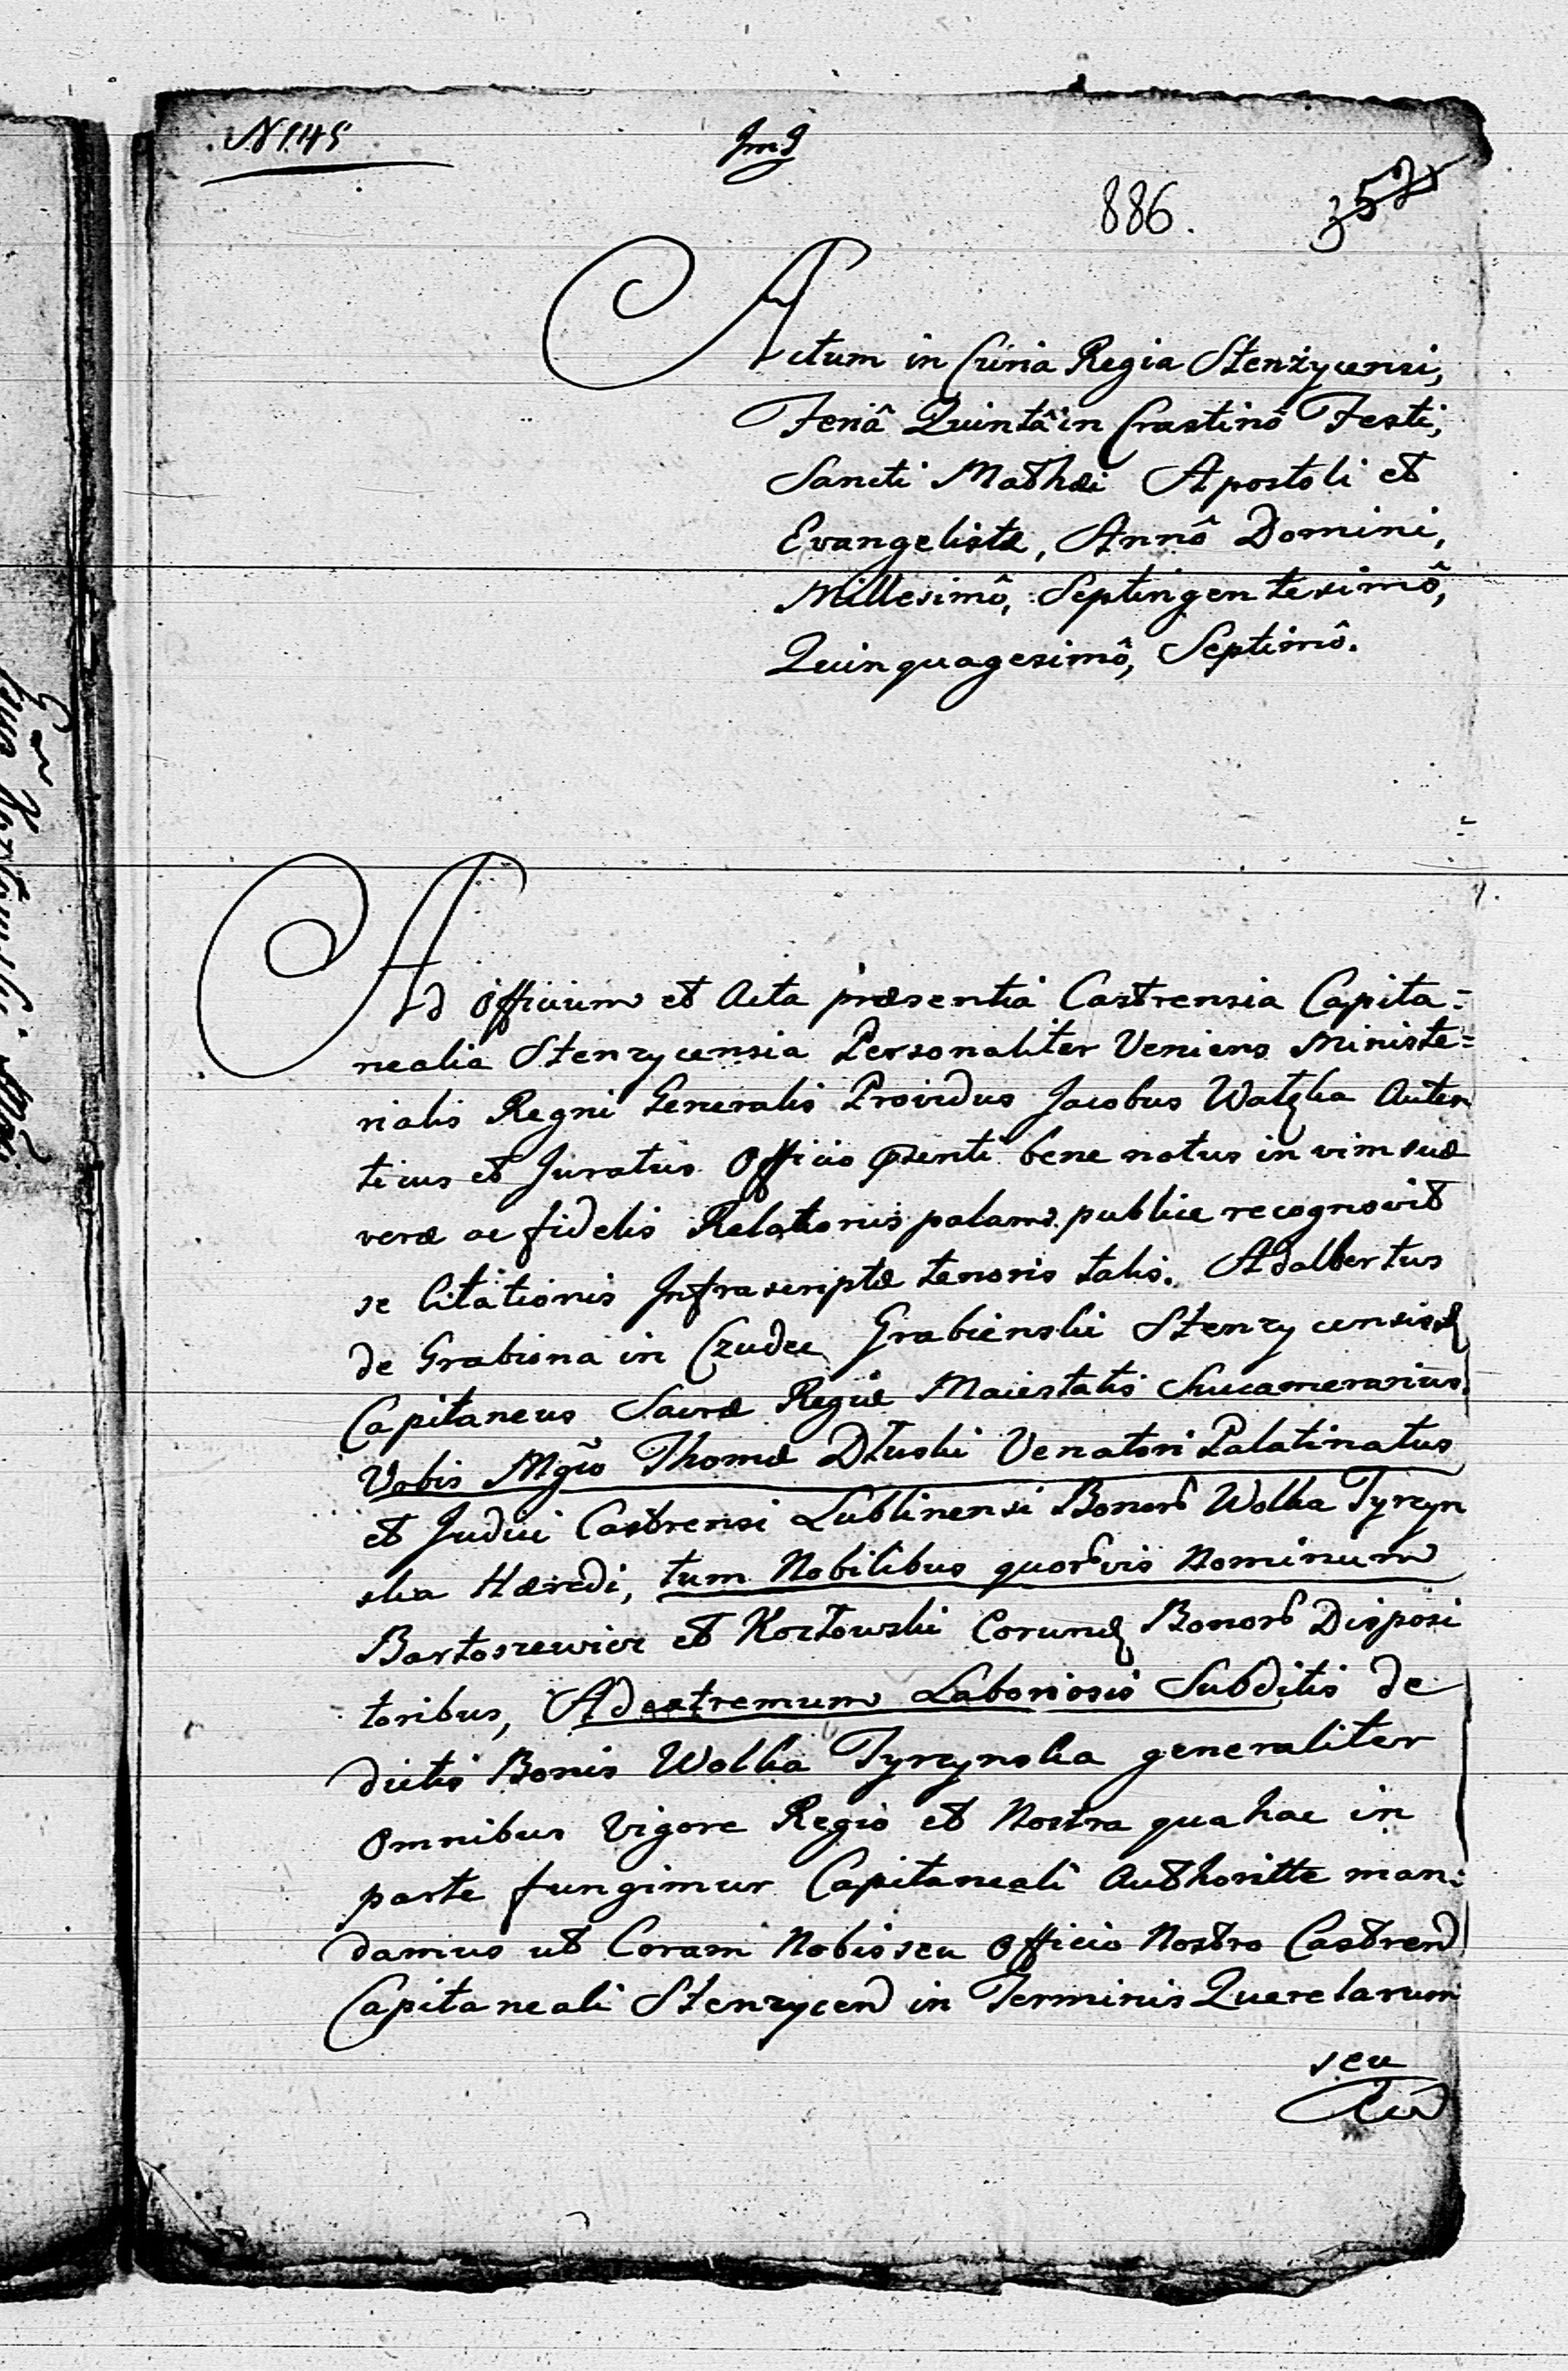 N 145
JmJ
886.
Actum in Curia Regia Stenżycensi,
Feriâ Quintâ in Crastinô Festi,
Sancti Mathæi Apostoli et
Evangelistæ, Annô Domini,
Millesimô, Septingentesimô,
Quinquagesimô, Septimô.
Ad Officium et Acta præsentia Castrensia Capita=
nealia Stenzycensia Personaliter Veniens Ministe=
rialis Regni Generalis Providus Jacobus Auten
ticus et Juratus Officio pzenti bene notus in vim suæ
veræ ac fidelis Relationis palam publice recognovit
se Citationis Infrascriptæ tenoris talis. Adalbertus
de Grabiona in Czudec Grabienski Stenzycensis
Capitaneus Sacræ Regiæ Maiestatis Succamerarius
Vobis Mgco Thomæ Dłuski Venatori Palatinatus
et Judici Castrensi Lublinensi Bonor Wolka Tyrzyn
ska Hæredi, tum Nobilibus quorvis Nominum
Bartoszewicz et Kozłowski Eorund Bonor Disposi
toribus, Ad extremum Laboriosis Subditis de
dictis Bonis Wolka Tyrzynska generaliter
Omnibus Vigore Regio et Nostra qua hac in
parte fungimur Capitaneali Authoritte man=
damus ut Coram Nobis seu Officio Nostro Castren
Capitaneali Stenzycen in Terminis Querelarum
seu